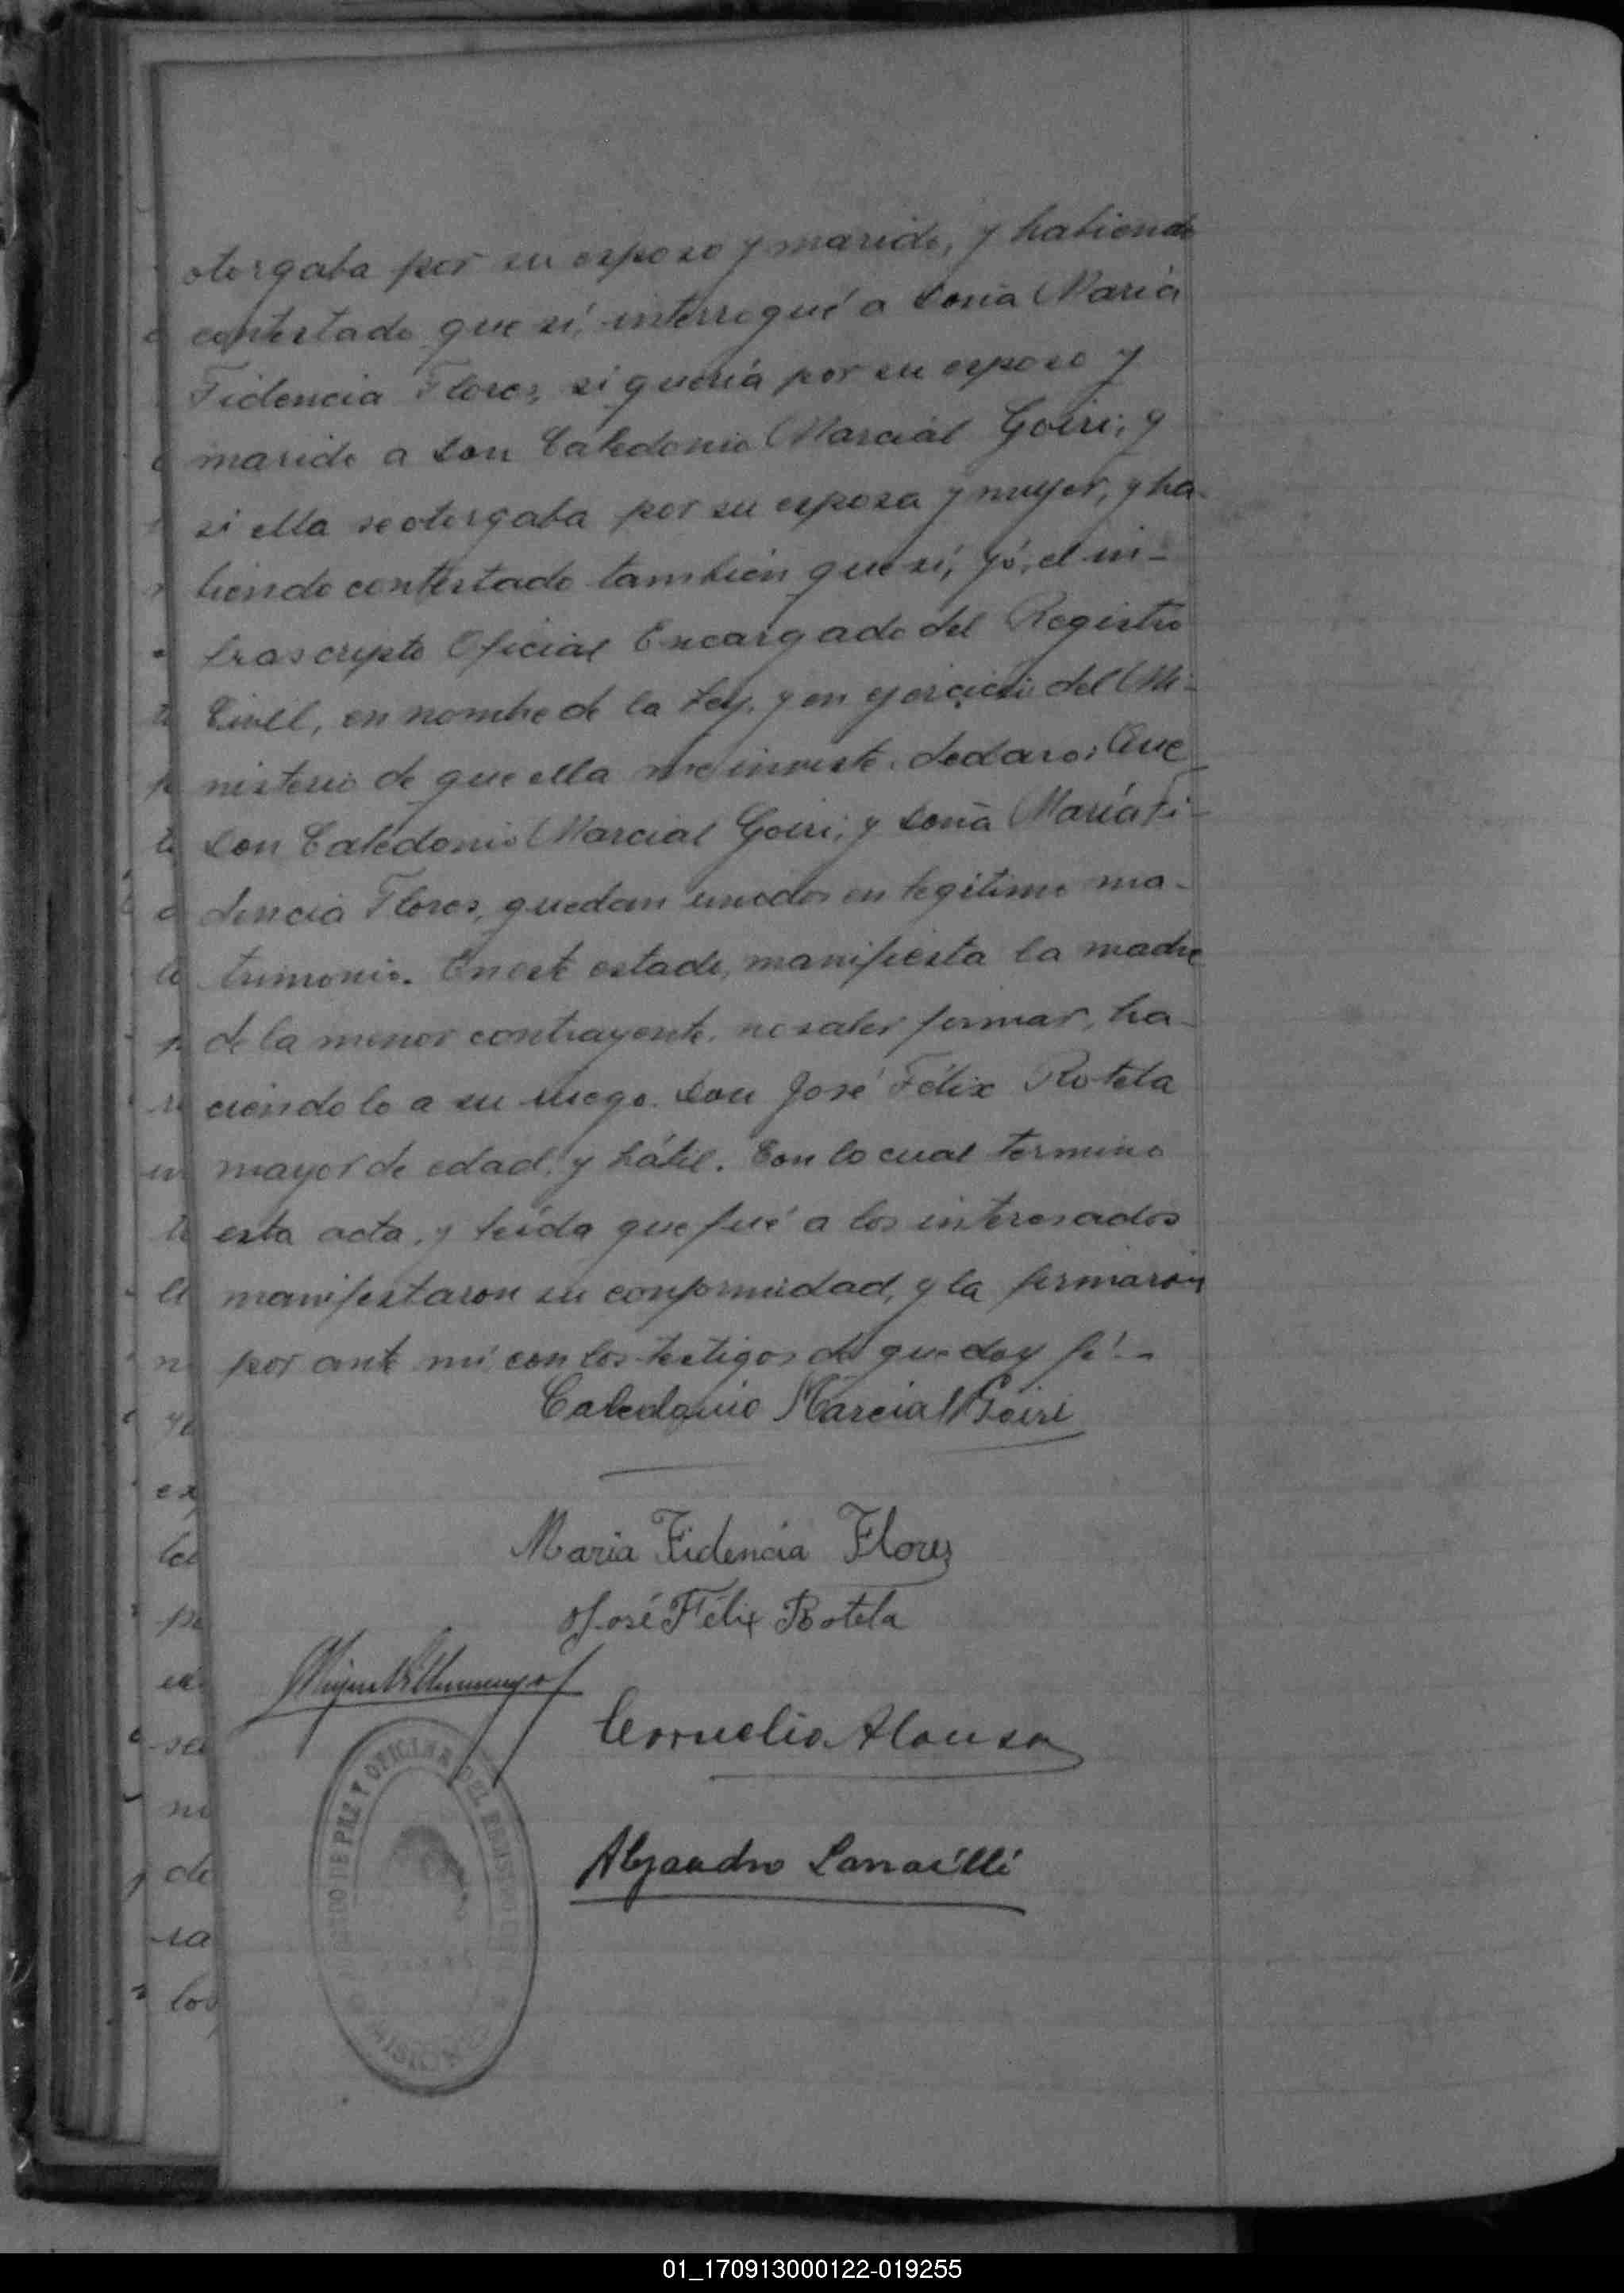 otorgaba por su esposo y marido, y habiendo
contestado que sí, interrogué a Doña María
Fidencia Flores, si quería por su esposo y
marido a Don Caledonio Marcial Goiri; y
si ella se otorgaba por su esposa y mujer, y ha-
biendo contestado también que sí, yó, el in-
frascripto Oficial Encargado del Registro
Civil, en nombre de la Ley, y en ejercicio del Mi-
nisterio de que ella me inviste, declaro: Que
Don Caledonio Marcial Goiri; y Doña María Fi-
dencia Flores, quedan unidos en legítimo ma-
trimonio. En este estado, manifiesta la madre
de la menor contrayente, no saber firmar, ha-
ciéndolo a su ruego Don José Félix Rotela
mayor de edad, y hábil. Con lo cual termino
esta acta, y leída que fué a los interesados
manifestaron su conformidad, y la firmaron
por ante mí, con los testigos de que doy fé.-
Caledonio Marcial Goiri
Maria Fidencia Flores
José Félix Rotela
Cornelio Alonso
JUZGADO DE PAZ Y OFICINA DEL REGISTRO CIVIL
Alejandro
01_170913000122-019255